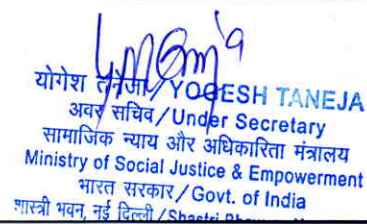 योगेश तनेजा/YOGESH TANEJA
अवर सचिव/Under Secretary
सामाजिक न्याय और अधिकारिता मंत्रालय
Ministry of Social Justice & Empowerment
भारत सरकार/Govt. of India
शास्त्री भवन, नई दिल्ली/Shastri